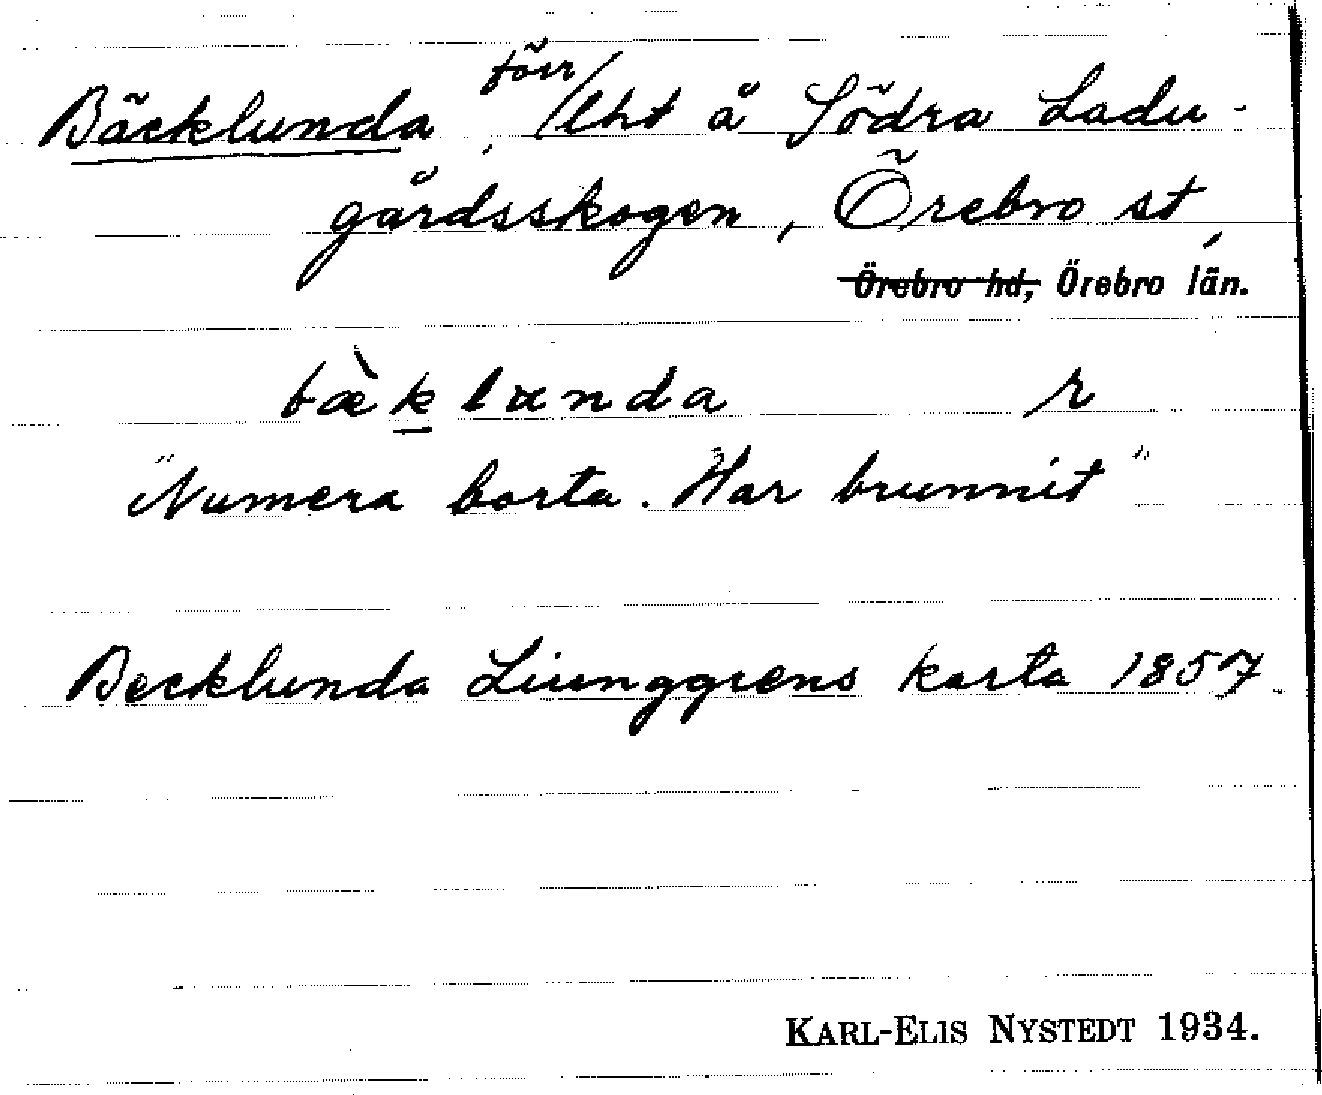 Bäcklunda, förr lht å Södra Ladu-
gårdsskogen, Örebro st,
Örebro hd, Örebro län.
bæ̀k lunda r
"Numera borta. Har brunnit"
Becklunda Liunggrens karta 1857.
KARL-ELIS NYSTEDT 1934.